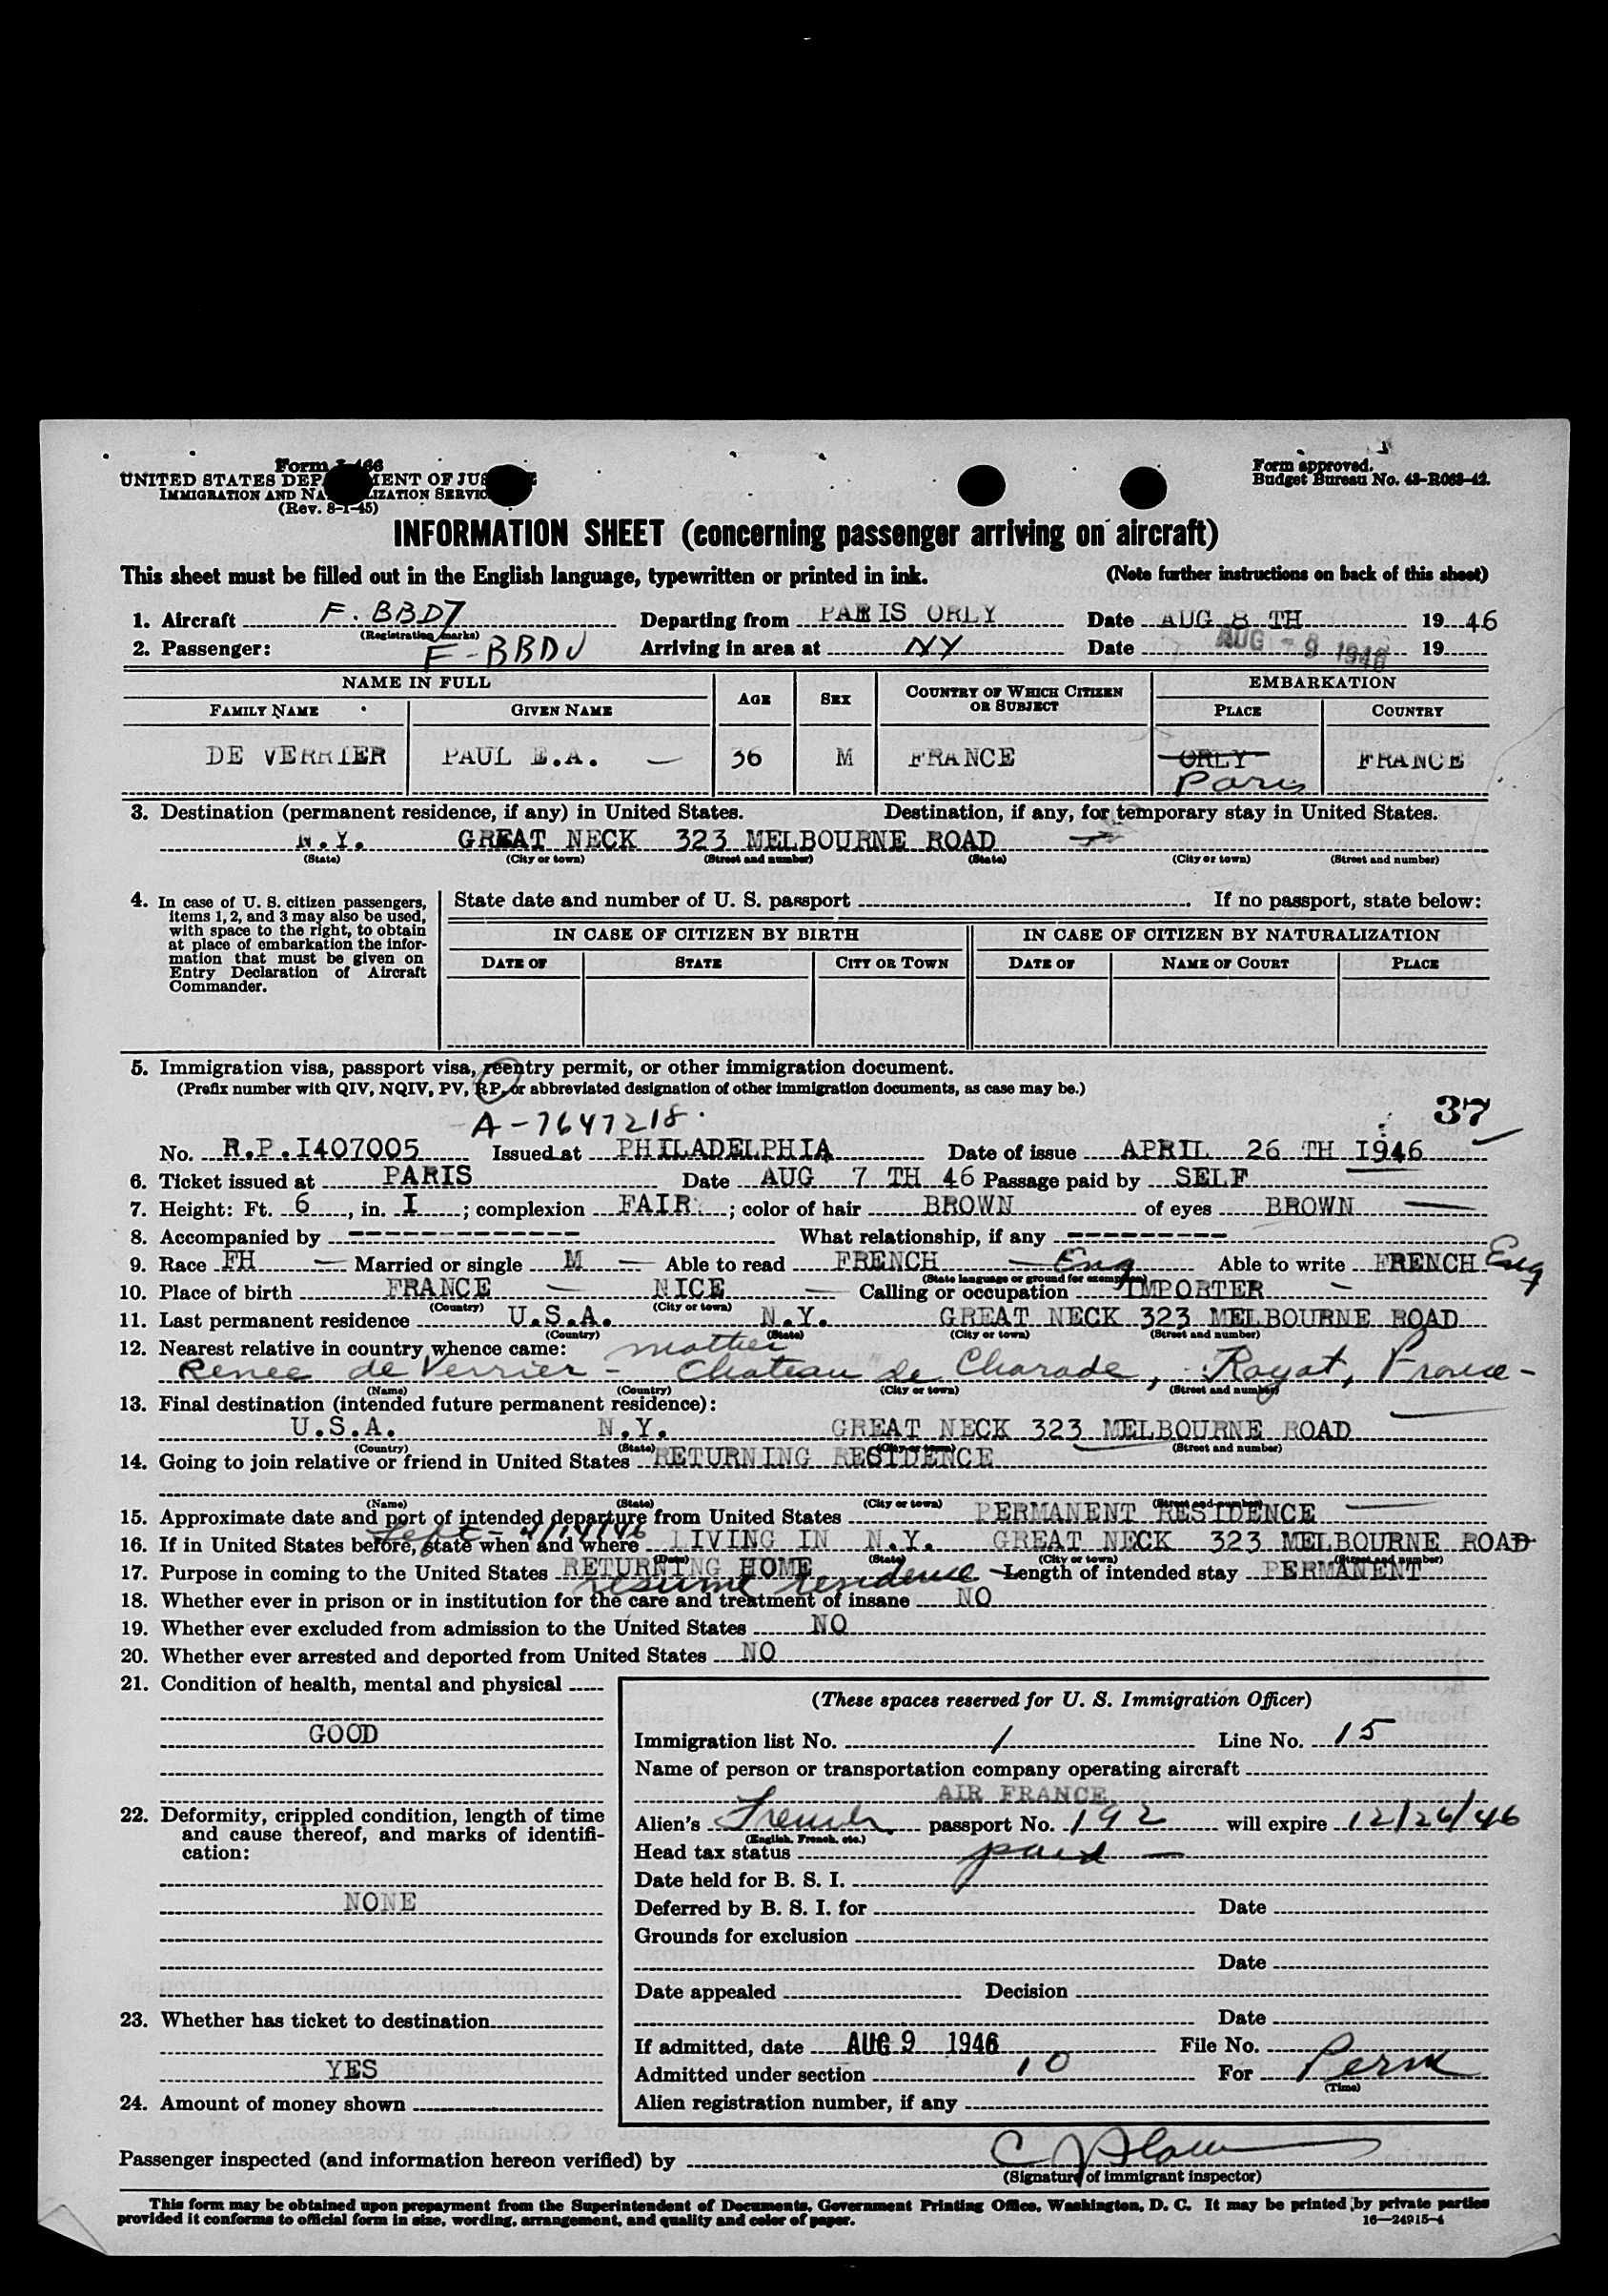 Form I-466
UNITED STATES DEPARTMENT OF JUSTICE
IMMIGRATION AND NATURALIZATION SERVICE
(Rev. 8-1-45)
Form approved.
Budget Bureau No. 43-R063-42.
INFORMATION SHEET (concerning passenger arriving on aircraft)
This sheet must be filled out in the English language, typewritten or printed in ink. (Note further instructions on back of this sheet)
1. Aircraft F. BBD7 Departing from PARIS ORLY Date AUG 8 TH 19 46
(Registration marks)
2. Passenger: F-BBDU Arriving in area at NY Date AUG - 9 1946 19
NAME IN FULL AGE SEX COUNTRY OF WHICH CITIZEN OR SUBJECT EMBARKATION
FAMILY NAME GIVEN NAME PLACE COUNTRY
DE VERRIER PAUL E.A. — 36 M FRANCE ORLY FRANCE
Paris
3. Destination (permanent residence, if any) in United States. Destination, if any, for temporary stay in United States.
N.Y. GREAT NECK 323 MELBOURNE ROAD
(State) (City or town) (Street and number) (State) (City or town) (Street and number)
4. In case of U. S. citizen passengers, items 1, 2, and 3 may also be used, with space to the right, to obtain at place of embarkation the information that must be given on Entry Declaration of Aircraft Commander.
State date and number of U. S. passport . If no passport, state below:
IN CASE OF CITIZEN BY BIRTH IN CASE OF CITIZEN BY NATURALIZATION
DATE OF STATE CITY OR TOWN DATE OF NAME OF COURT PLACE
5. Immigration visa, passport visa, reentry permit, or other immigration document.
(Prefix number with QIV, NQIV, PV, RP, or abbreviated designation of other immigration documents, as case may be.)
A-7647218. 37
No. R.P.I407005 Issued at PHILADELPHIA Date of issue APRIL 26 TH I946
6. Ticket issued at PARIS Date AUG 7 TH 46 Passage paid by SELF
7. Height: Ft. 6, in. I; complexion FAIR; color of hair BROWN of eyes BROWN —
8. Accompanied by ------------- What relationship, if any ----------
9. Race FH — Married or single M — Able to read FRENCH — Eng Able to write FRENCH Eng
(State language or ground for exemption)
10. Place of birth FRANCE — NICE — Calling or occupation IMPORTER —
(Country) (City or town)
11. Last permanent residence U.S.A. N.Y. GREAT NECK 323 MELBOURNE ROAD
(Country) (State) (City or town) (Street and number)
12. Nearest relative in country whence came: mother
Renee de Verrier - Chateau de Charade, Royat, France -
(Name) (Country) (City or town) (Street and number)
13. Final destination (intended future permanent residence):
U.S.A. N.Y. GREAT NECK 323 MELBOURNE ROAD
(Country) (State) (City or town) (Street and number)
14. Going to join relative or friend in United States RETURNING RESIDENCE
(Name) (State) (City or town) (Street and number)
15. Approximate date and port of intended departure from United States PERMANENT RESIDENCE
left - 4/14/46
16. If in United States before, state when and where LIVING IN N.Y. GREAT NECK 323 MELBOURNE ROAD
(Date) (State) (City or town) (Street and number)
17. Purpose in coming to the United States RETURNING HOME Length of intended stay PERMANENT
resume residence
18. Whether ever in prison or in institution for the care and treatment of insane NO
19. Whether ever excluded from admission to the United States NO
20. Whether ever arrested and deported from United States NO
21. Condition of health, mental and physical
GOOD
22. Deformity, crippled condition, length of time and cause thereof, and marks of identification:
NONE
23. Whether has ticket to destination
YES
24. Amount of money shown
(These spaces reserved for U. S. Immigration Officer)
Immigration list No. 1 Line No. 15
Name of person or transportation company operating aircraft
AIR FRANCE
Alien's French passport No. 192 will expire 12/26/46
(English, French, etc.)
Head tax status paid —
Date held for B. S. I.
Deferred by B. S. I. for Date
Grounds for exclusion
Date
Date appealed Decision
Date
If admitted, date AUG 9 1946 File No.
Admitted under section 10 For Perm
(Time)
Alien registration number, if any
Passenger inspected (and information hereon verified) by
(Signature of immigrant inspector)
This form may be obtained upon prepayment from the Superintendent of Documents, Government Printing Office, Washington, D. C. It may be printed by private parties
provided it conforms to official form in size, wording, arrangement, and quality and color of paper. 16—24915-4